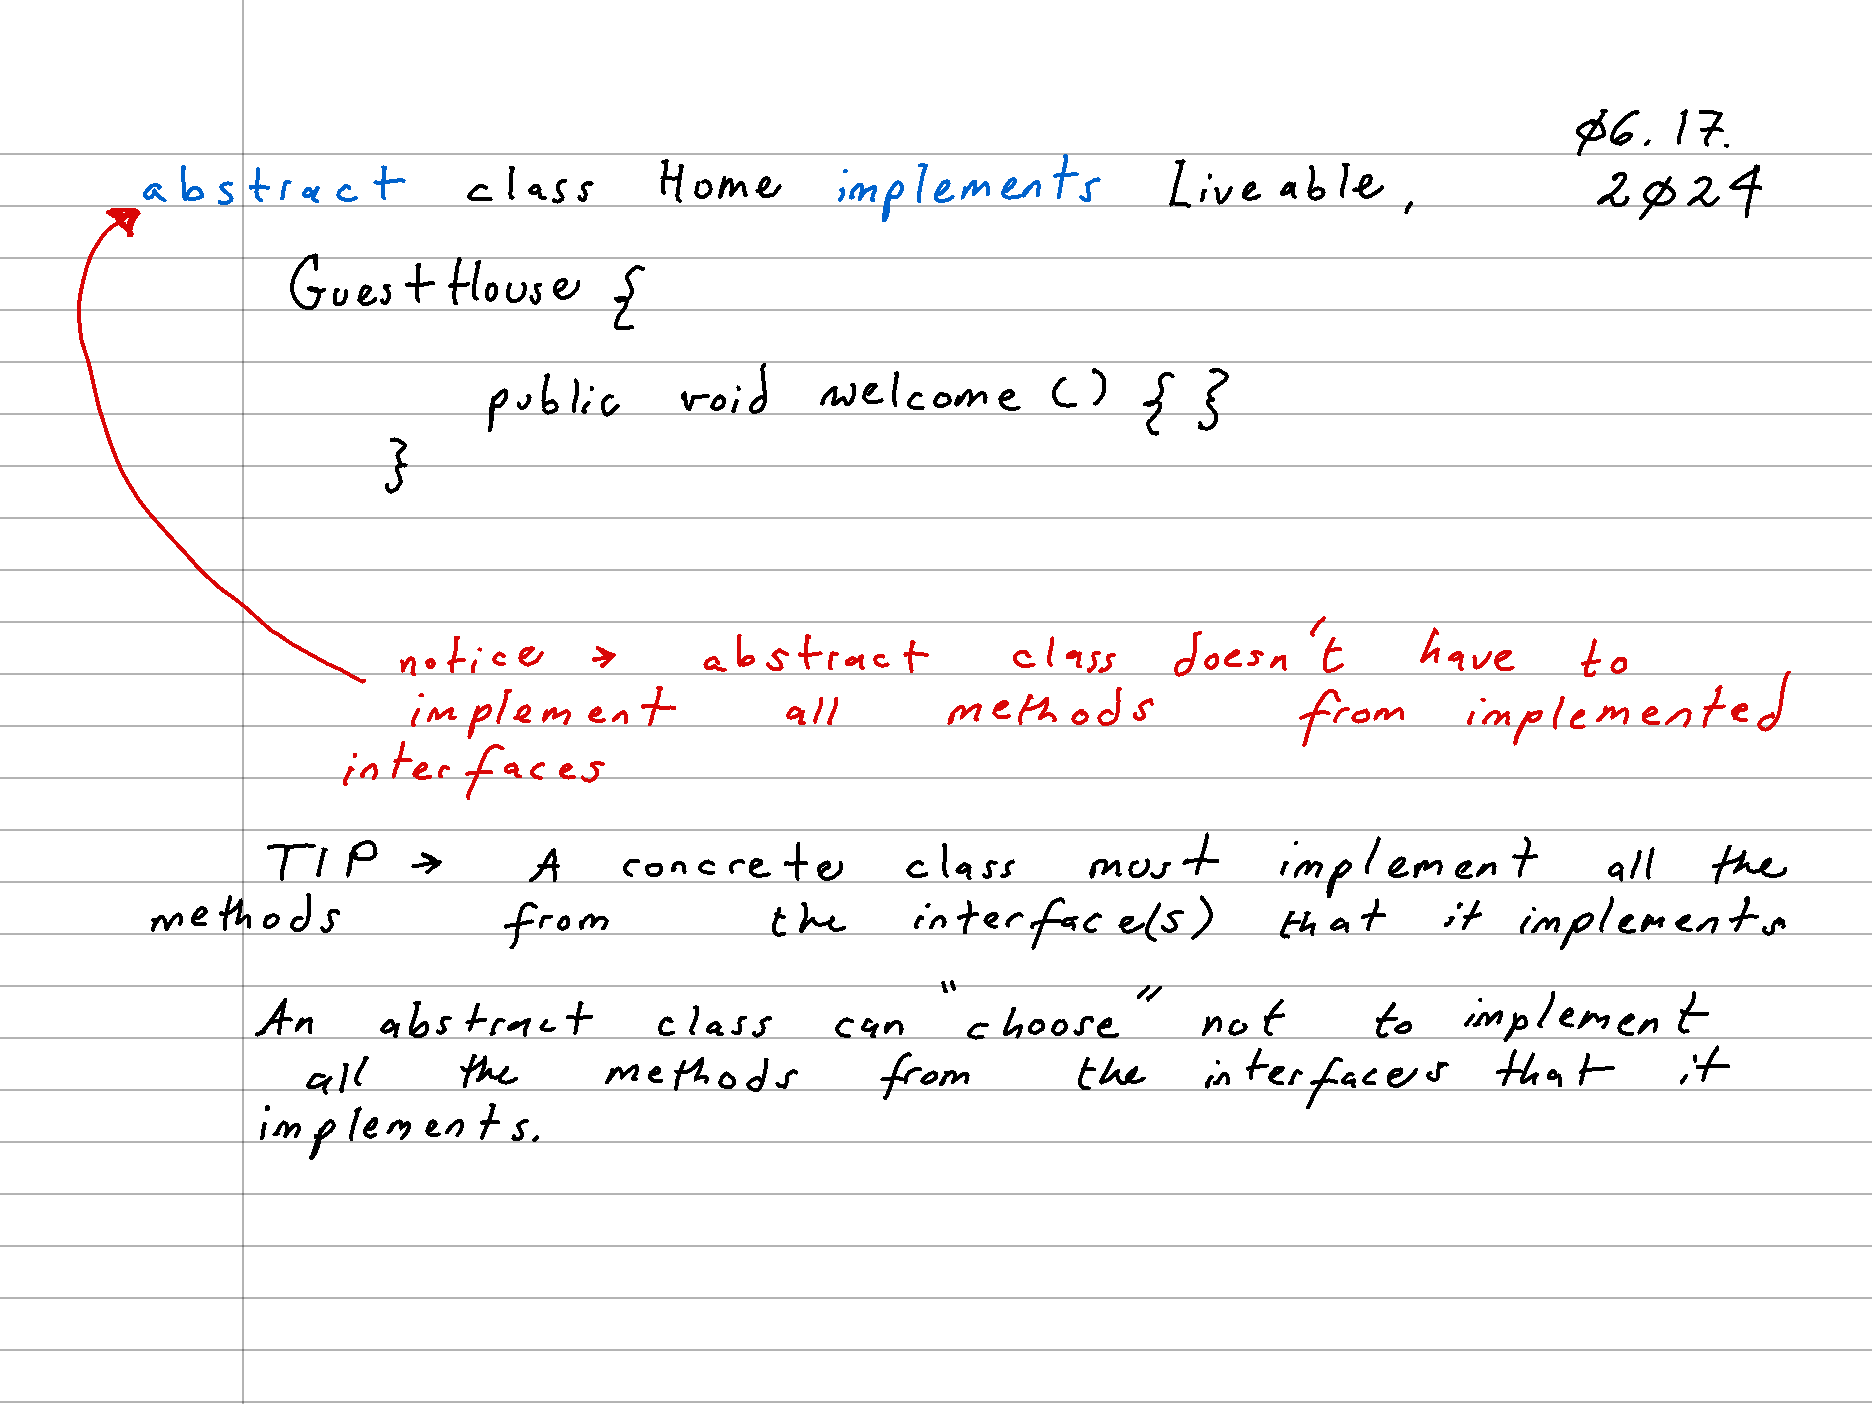 Ø6.17.
2Ø24
abstract class Home implements Liveable,
GuestHouse {
public void welcome () { }
}
notice → abstract class doesn't have to
implement all methods from implemented
interfaces
TIP → A concrete class must implement all the
methods from the interface(s) that it implements
An abstract class can "choose" not to implement
all the methods from the interfaces that it
implements.